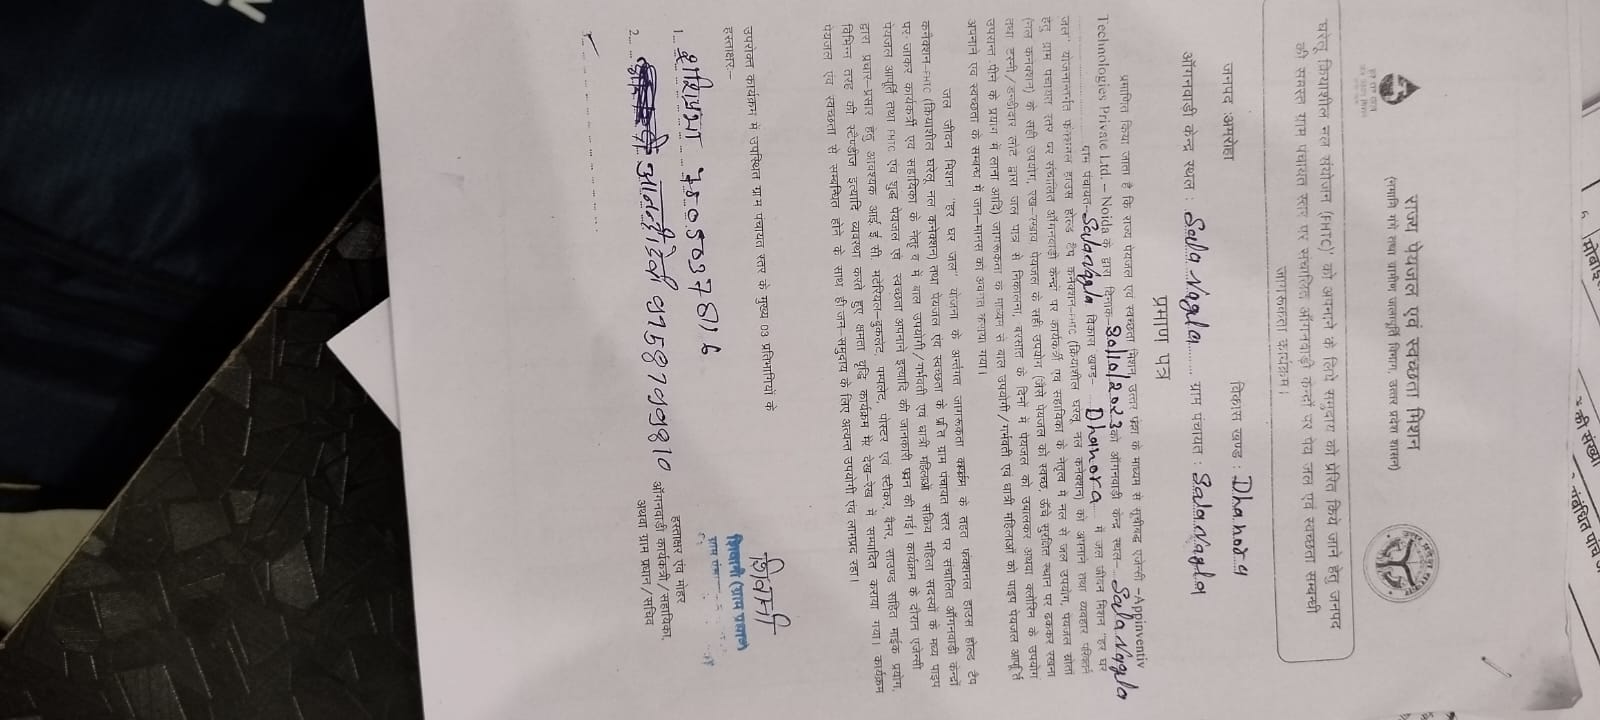 राज्य पेयजल एवं स्वच्छता मिशन
(नमामि गंगे तथा ग्रामीण जलापूर्ति विभाग, उत्तर प्रदेश शासन)
'घरेलू क्रियाशील नल संयोजन (FHTC)' को अपनाने के लिये समुदाय को प्रेरित किये जाने हेतु जनपद
की समस्त ग्राम पंचायत स्तर पर संचालित ऑगनवाड़ी केन्द्रों पर पेय जल एवं स्वच्छता सम्बन्धी
जागरूकता कार्यक्रम।
जनपद अमरोहा विकास खण्ड : Dhanora
ऑगनवाडी केन्द्र स्थल : Sala Nagla ग्राम पंचायत : Sala Nagla
प्रमाण पत्र
प्रमाणित किया जाता है कि राज्य पेयजल एवं स्वच्छता मिशन, उत्तर प्रदेश के माध्यम से सूचीबद्ध एजेन्सी -Appinventiv
Technologies Private Ltd. – Noida के द्वारा दिनांक- 30/10/2023 को ऑगनवाड़ी केन्द्र स्थल- Sala Nagla
ग्राम पंचायत- Sala Nagla विकास खण्ड- Dhanora में जल जीवन मिशन "हर घर
जल" योजनान्तर्गत फंक्शनल हाउस होल्ड टैप कनेक्शन-FHTC (क्रियाशील घरेलू नल कनेक्शन) को अपनाने तथा व्यवहार परिवर्तन
हेतु ग्राम पंचायत स्तर पर संचालित ऑगनवाड़ी केन्द्र पर कार्यकत्री एवं सहायिका के नेतृत्व में नल से जल उपयोग, पेयजल स्रोतों
(नल कनेक्शन) के सही उपयोग, रख-रखाव पेयजल के सही उपयोग (जैसे पेयजल को स्वच्छ, ऊँचे सुरक्षित स्थान पर ढककर रखना
तथा टन्टी/डन्डीदार लोटे द्वारा जल पात्र से निकालना, बरसात के दिनों में पेयजल को उबालकर अथवा क्लोरिन के उपयोग
उपरान्त पीने के प्रयोग में लाना आदि) जागरूकता के माध्यम से बाल उपयोगी/गर्भवती एवं धात्री महिलाओं को पाइप पेयजल आपूर्ति
अपनाने एवं स्वच्छता के सम्बन्ध में जन-मानस को अवगत कराया गया।
जल जीवन मिशन "हर घर जल" योजना के अन्तर्गत जागरूकता कार्यक्रम के तहत फंक्शनल हाउस होल्ड टैप
कनैक्शन-FHTC (क्रियाशील घरेलू नल कनेक्शन) तथा पेयजल एवं स्वच्छता के प्रति ग्राम पंचायत स्तर पर संचालित ऑगनवाड़ी केन्द्रों
पर जाकर कार्यकत्री एवं सहायिका के नेतृत्व में बाल उपयोगी/गर्भवती एवं धात्री महिलाओं सक्रिय महिला सदस्यों के मध्य पाइप
पेयजल आपूर्ति तथा FHTC एवं शुद्ध पेयजल एवं स्वच्छता अपनाने इत्यादि की जानकारी प्रदान की गई। कार्यक्रम के दौरान एजेन्सी
द्वारा प्रचार-प्रसार हेतु आवश्यक आई ई सी मटेरियल-बुकलेट, पम्पलेट, पोस्टर एवं स्टीकर, बैनर, साउण्ड सहित माईक प्रयोग,
विभिन्न तरह की स्टैण्डीज इत्यादि व्यवस्था करते हुए क्षमता वृद्धि कार्यक्रम मेरे देख-रेख में सम्पादित कराया गया। कार्यक्रम
पेयजल एवं स्वच्छता से सम्बन्धित होने के साथ ही जन-समुदाय के लिए अत्यन्त उपयोगी एवं लाभप्रद रहा।
उपरोक्त कार्यक्रम में उपस्थित ग्राम पंचायत स्तर के मुख्य 03 प्रतिभागियों के
हस्ताक्षर:–
शिवानी
शिवानी (ग्राम प्रधान)
1. शशिप्रभा
2. आनन्दी देवी 9758799810
3.
हस्ताक्षर एवं मोहर
ऑगनवाडी कार्यकत्री/सहायिका,
अथवा ग्राम प्रधान/सचिव
मोबाइ
की संख्या
संबंधित पंच